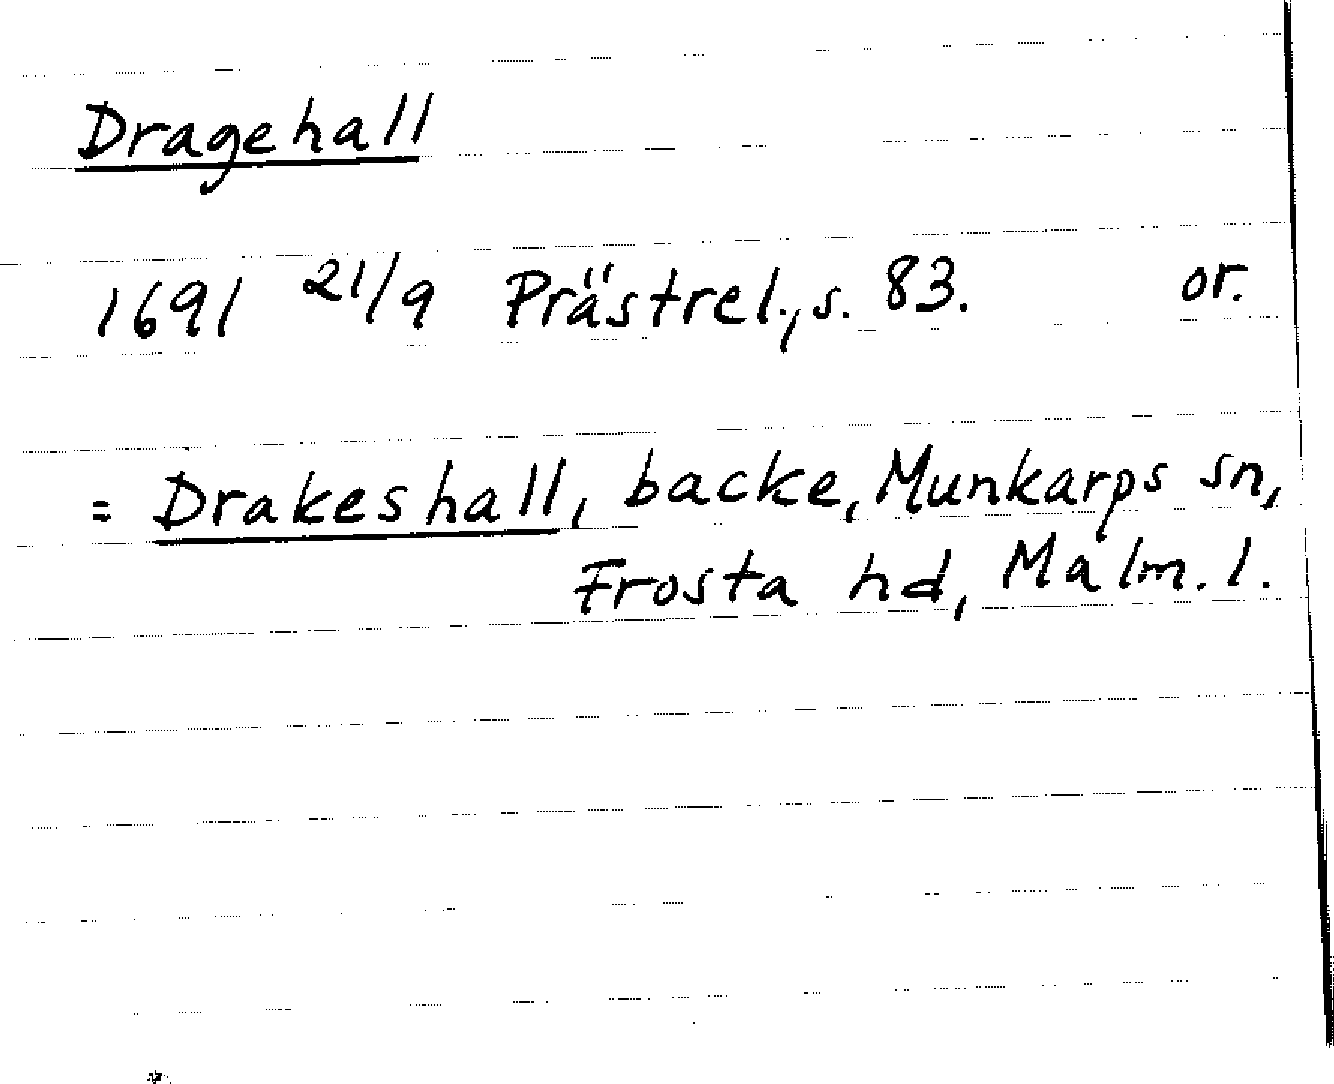 Dragehall
1691 21/9 Prästrel., s. 83. or.
= Drakeshall, backe, Munkarps sn,
Frosta hd, Malm. l.